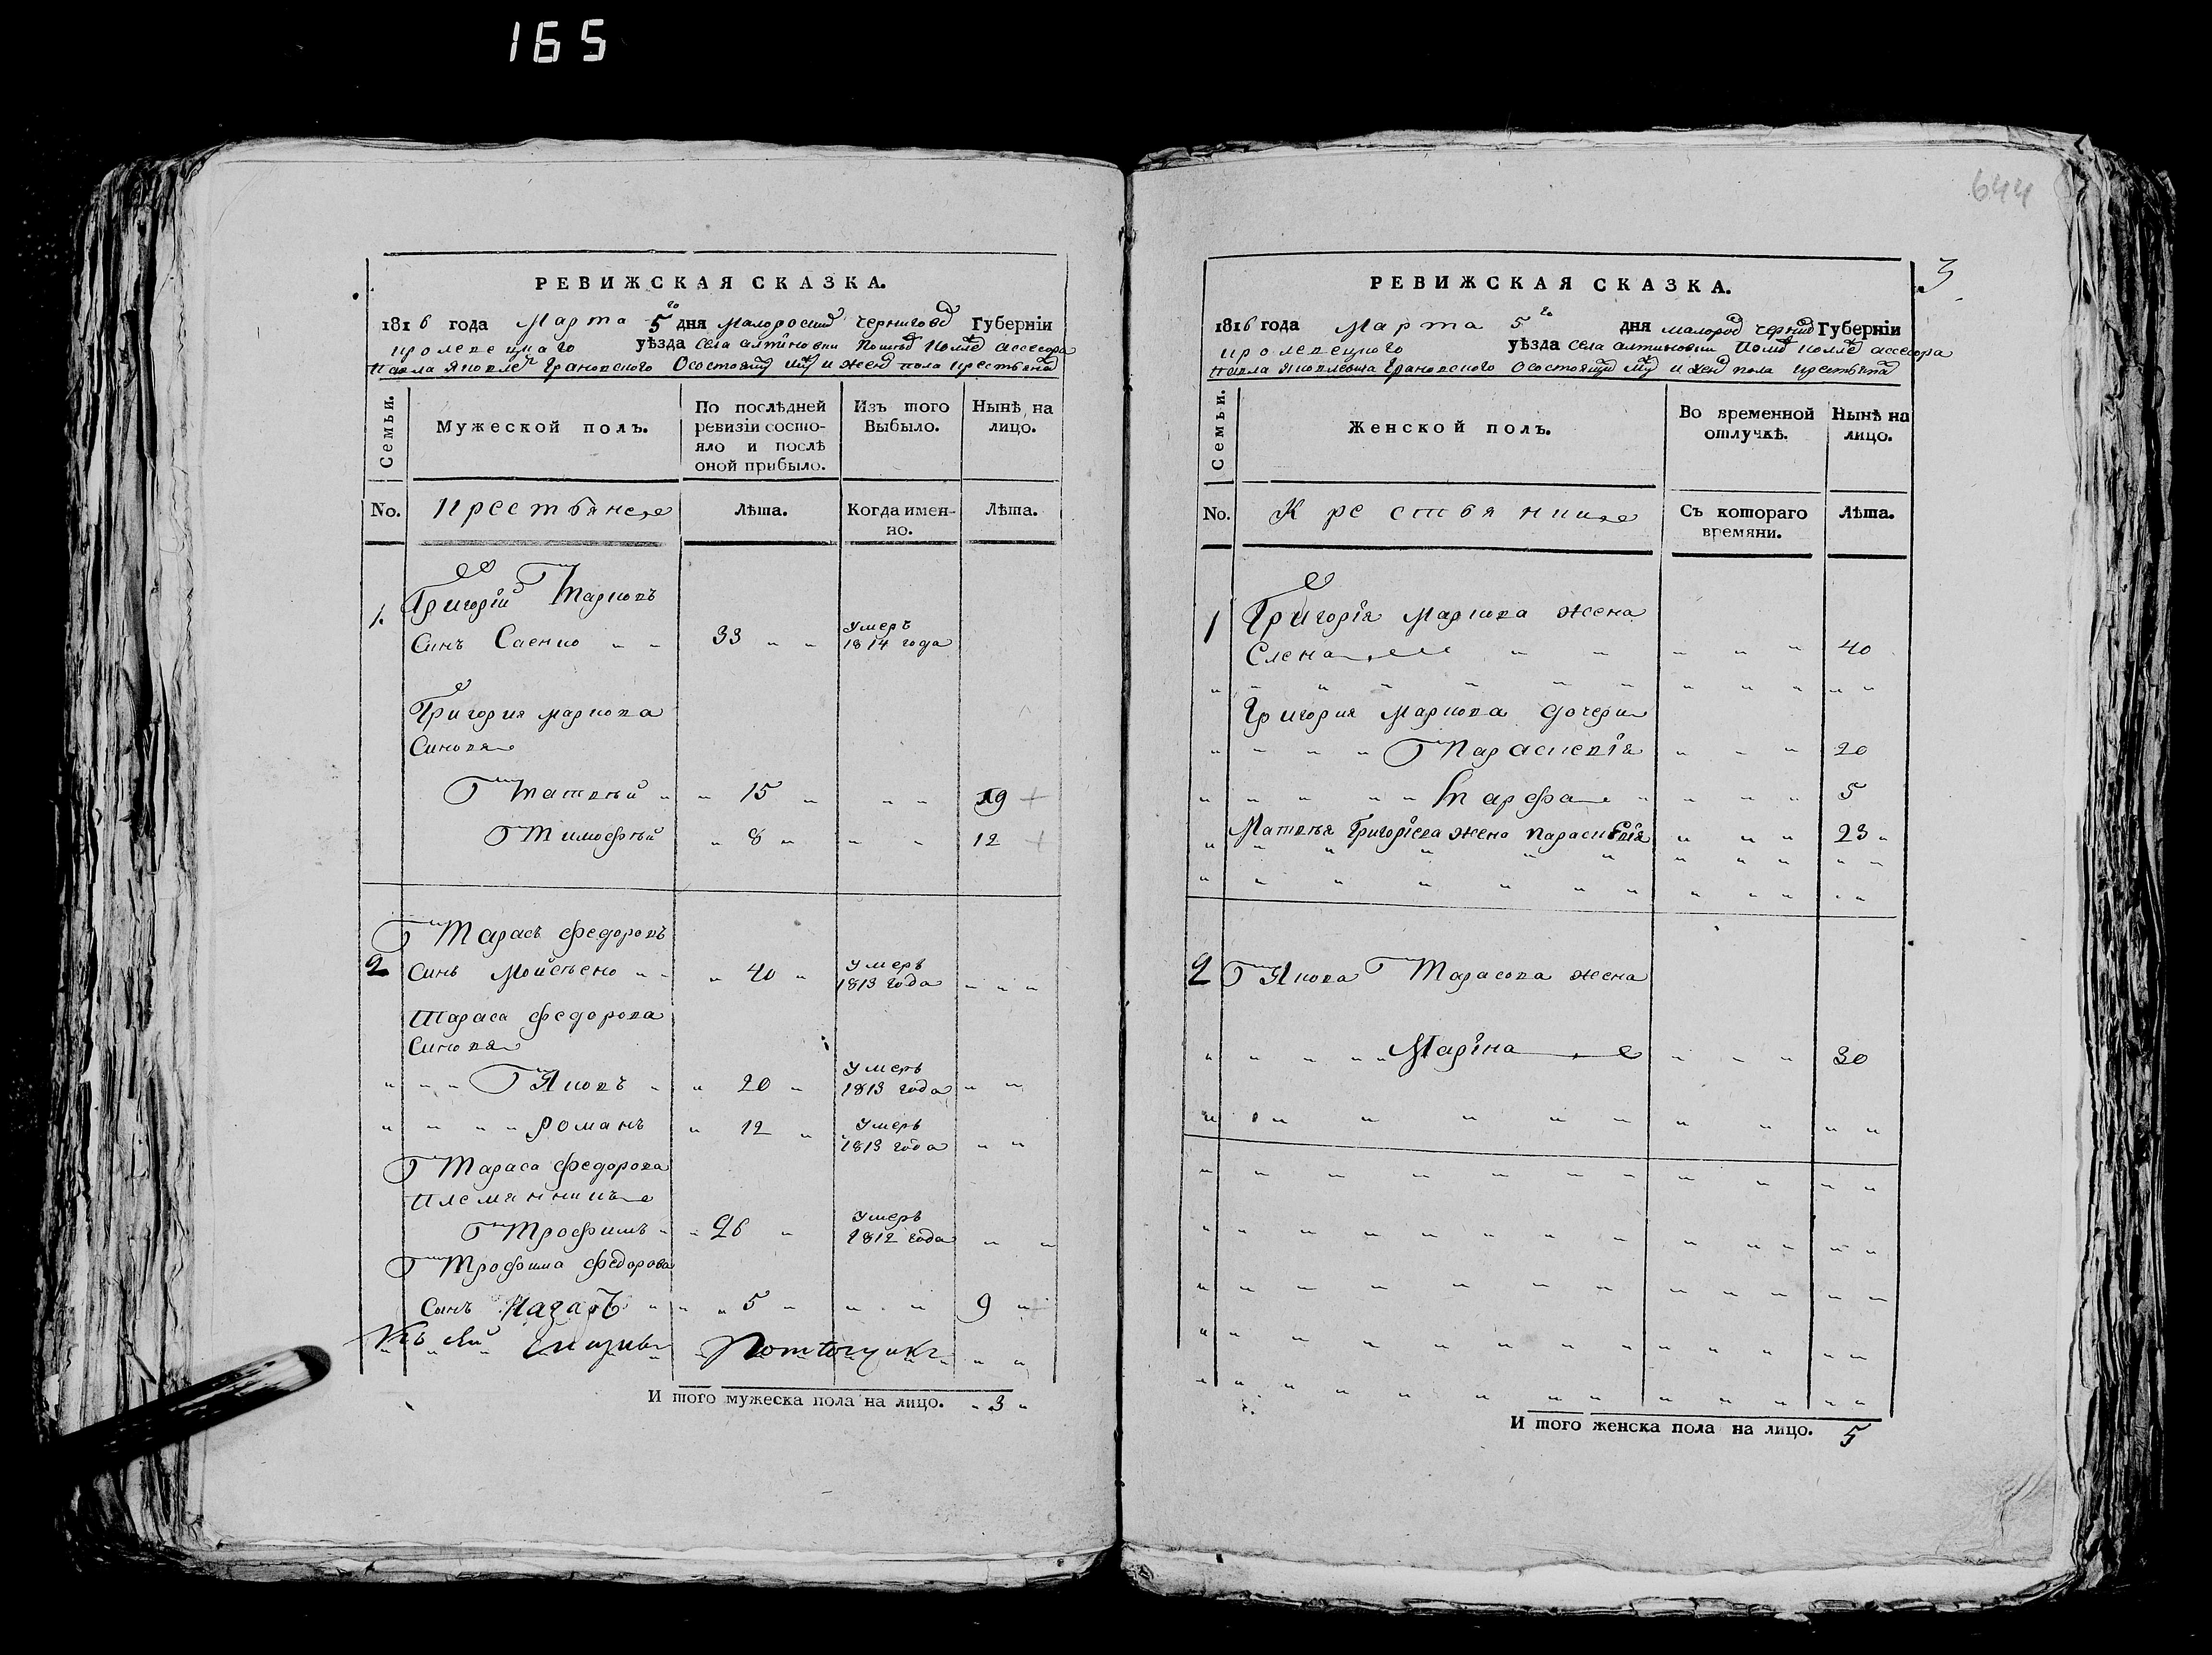 165
644
РЕВИЖСКАЯ СКАЗКА.
1816 года Марта 5го дня Малоросий Чернигов Губернїи
кролевецкаго уѣзда села алтиновки Помещ Колле ассесора
Павла Яковле Грановского О состоящ муж и жен пола крестьянах
Семьи.
Мужеской полъ.
По послѣдней ревизїи состояло и послѣ оной прибыло.
Изъ того Выбыло.
Нынѣ на лицо.
No.
Крестьяне
Лѣта.
Когда именно.
Лѣта.
1. Григорїй Марковъ
Синъ Саенко 33 умеръ 1814 года
Григория Маркова
Синовя
Матвѣй 15 19
Тимофѣй 8 12
Тарасъ Федоровъ
2 Синъ Мойсѣенко 40 умеръ 1813 года
Тараса Федорова
Синовя
Яковъ 20 умеръ 1813 года
романъ 12 умеръ 1813 года
Тараса Федорова
Племянникъ
Трофимъ 26 умеръ 1812 года
Трофима Федорова
Сынъ Назаръ 5 9
И того мужеска пола на лицо. 3
3
РЕВИЖСКАЯ СКАЗКА.
1816 года Марта 5го дня малорос черниг Губернїи
кролевецкого уѣзда села алтиновки Помѣ колле ассесора
Павла Яковлевича Грановского О состоящи му и жен пола крестьяна
Семьи.
Женской полъ.
Во временной отлучкѣ.
Нынѣ на лицо.
No.
Крестьянки
Съ котораго времяни.
Лѣта.
1 Григорїя Маркова жена
Елена 40
Григория Маркова дочери
Параскевїя 20
Марфа 5
Матвѣя Григорїева жена параскевїя 23
2 Якова Тарасова жена
Марїна 30
И того женска пола на лицо. 5